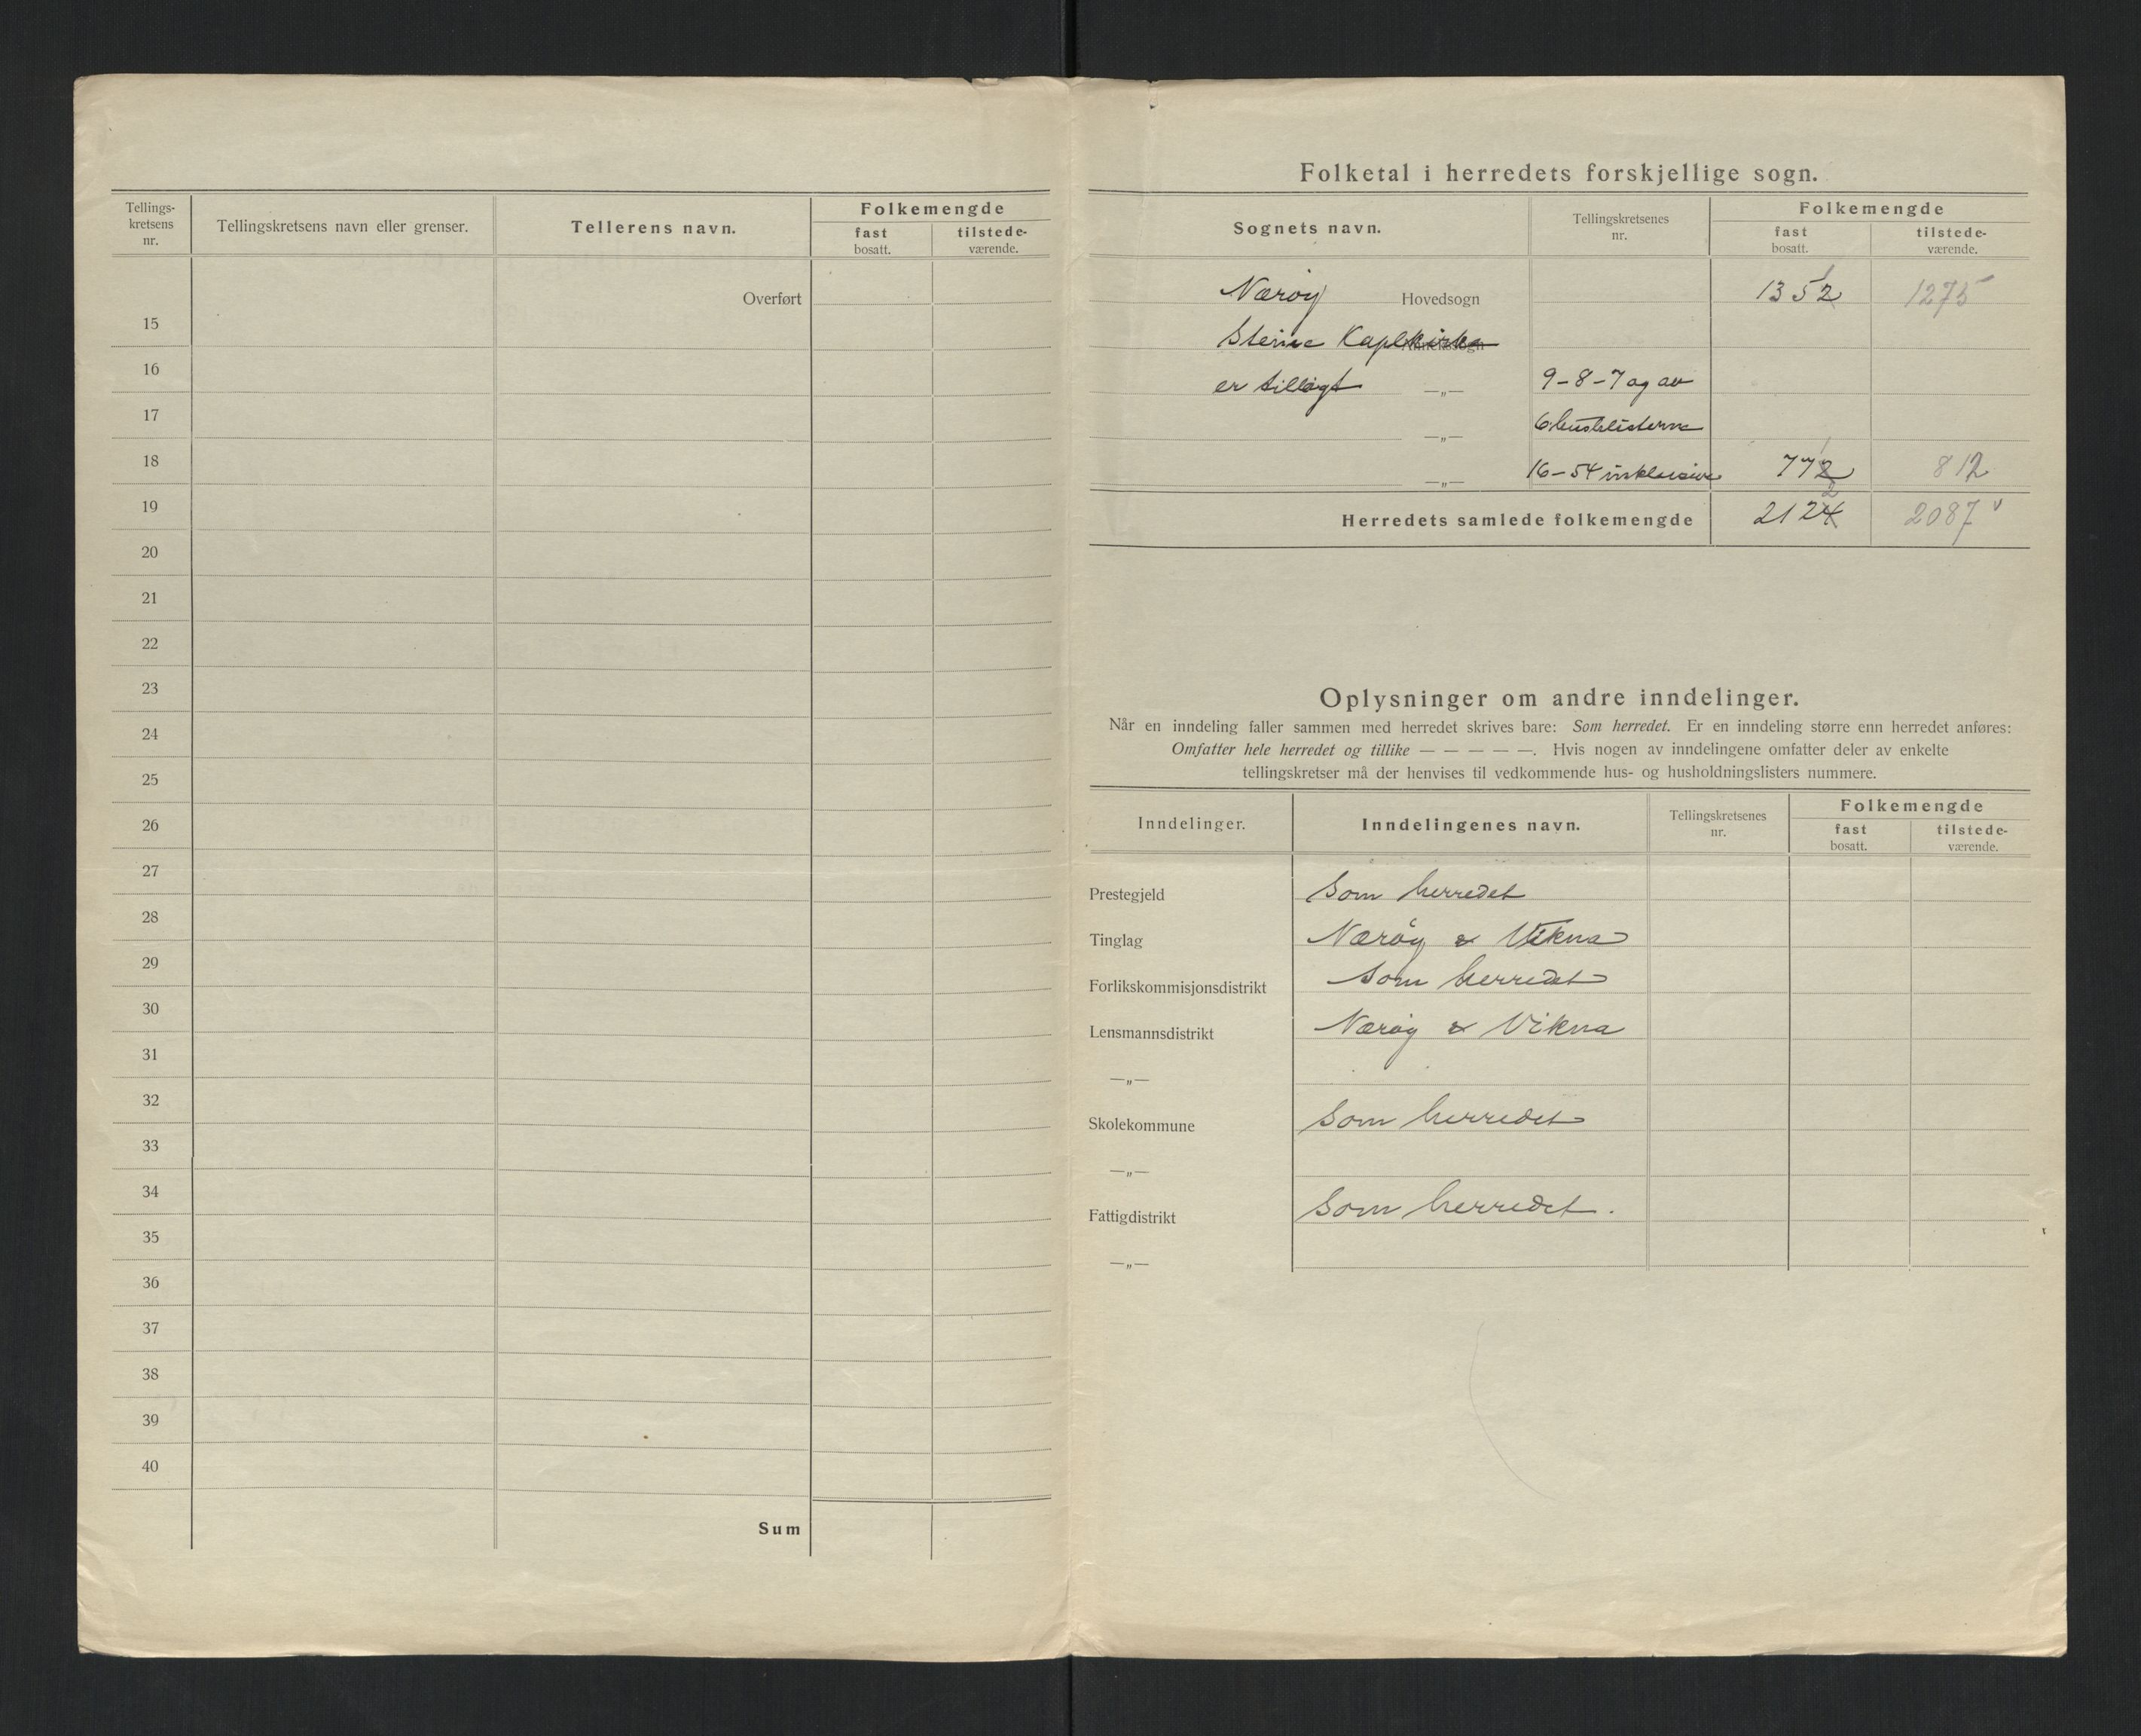 Tellings-
kretsens
nr.
Tellingskretsens navn eller grenser.
Tellerens navn.
Folkemengde
fast
bosatt.
tilstede-
værende.
Overført
15
16
17
18
19
20
21
22
23
24
25
26
27
28
29
30
31
32
33
34
35
36
37
38
39
40
Sum
Folketal i herredets forskjellige sogn.
Sognets navn.
Tellingskretsenes
nr.
Folkemengde
fast
bosatt.
tilstede-
værende.
Nærøy Hovedsogn 1352 1 1275
Steine Kapl
er tillagt —„— 9-8-7 og av
—„— 6 huslisterne
—„— 16-54 inklusive 772 1 812
Herredets samlede folkemengde 2124 2 2087
Oplysninger om andre inndelinger.
Når en inndeling faller sammen med herredet skrives bare: Som herredet. Er en inndeling større enn herredet anføres:
Omfatter hele herredet og tillike — — — — —. Hvis nogen av inndelingene omfatter deler av enkelte
tellingskretser må der henvises til vedkommende hus- og husholdningslisters nummere.
Inndelinger.
Inndelingenes navn.
Tellingskretsenes
nr.
Folkemengde
fast
bosatt.
tilstede-
værende.
Prestegjeld Som herredet
Tinglag Nærøy & Vikna
Forlikskommisjonsdistrikt Som herredet
Lensmannsdistrikt Nærøy & Vikna
—„—
Skolekommune Som herredet
—„—
Fattigdistrikt Som herredet.
—„—